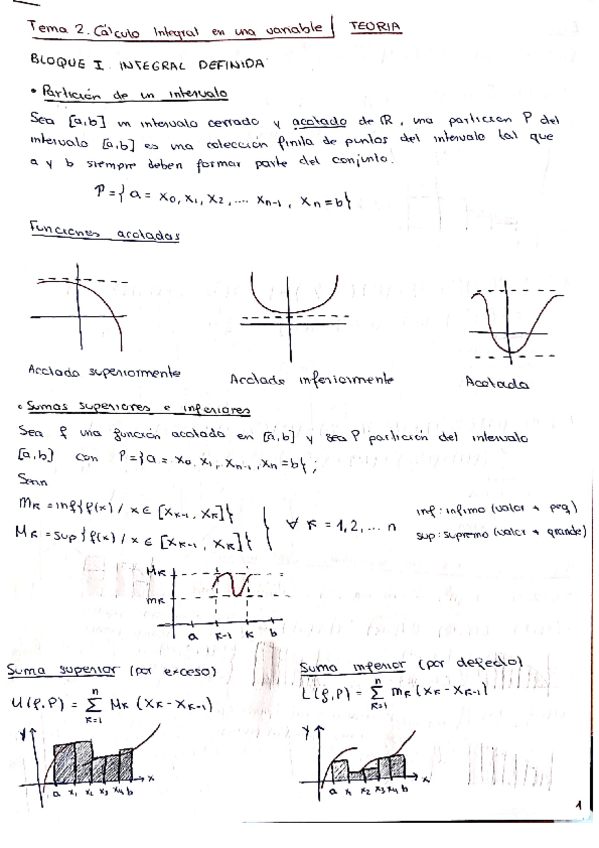 Tema 2. Cálculo Integral en una variable | TEORIA
BLOQUE I INTEGRAL DEFINIDA
• Partición de un intervalo
Sea [a,b] un intervalo cerrado y acotado de ℝ, una particion P del
intervalo [a,b] es una colección finita de puntos del intervalo tal que
a y b siempre deben formar parte del conjunto.
P = { a = x₀, x₁, x₂, .... xₙ₋₁, xₙ = b }
Funciones acotadas
Acotada superiormente
Acotada inferiormente
Acotada
• Sumas superiores e inferiores
Sea f una función acotada en [a,b] y sea P partición del intervalo
[a,b] con P = { a = x₀, x₁, xₙ₋₁, xₙ = b } ;
Sean
mₖ = inf { f(x) / x ∈ [xₖ₋₁, xₖ] }
Mₖ = sup { f(x) / x ∈ [xₖ₋₁, xₖ] }
∀ k = 1, 2, ... n
inf: infimo (valor + peq)
sup: supremo (valor + grande)
Mₖ
mₖ
a k-1 k b
Suma superior (por exceso)
U(f,P) = Σ Mₖ (xₖ - xₖ₋₁)
n
k=1
y
a x₁ x₂ x₃ x₄ b x
Suma inferior (por defecto)
L(f,P) = Σ mₖ (xₖ - xₖ₋₁)
n
k=1
y
a x₁ x₂ x₃ x₄ b x
1